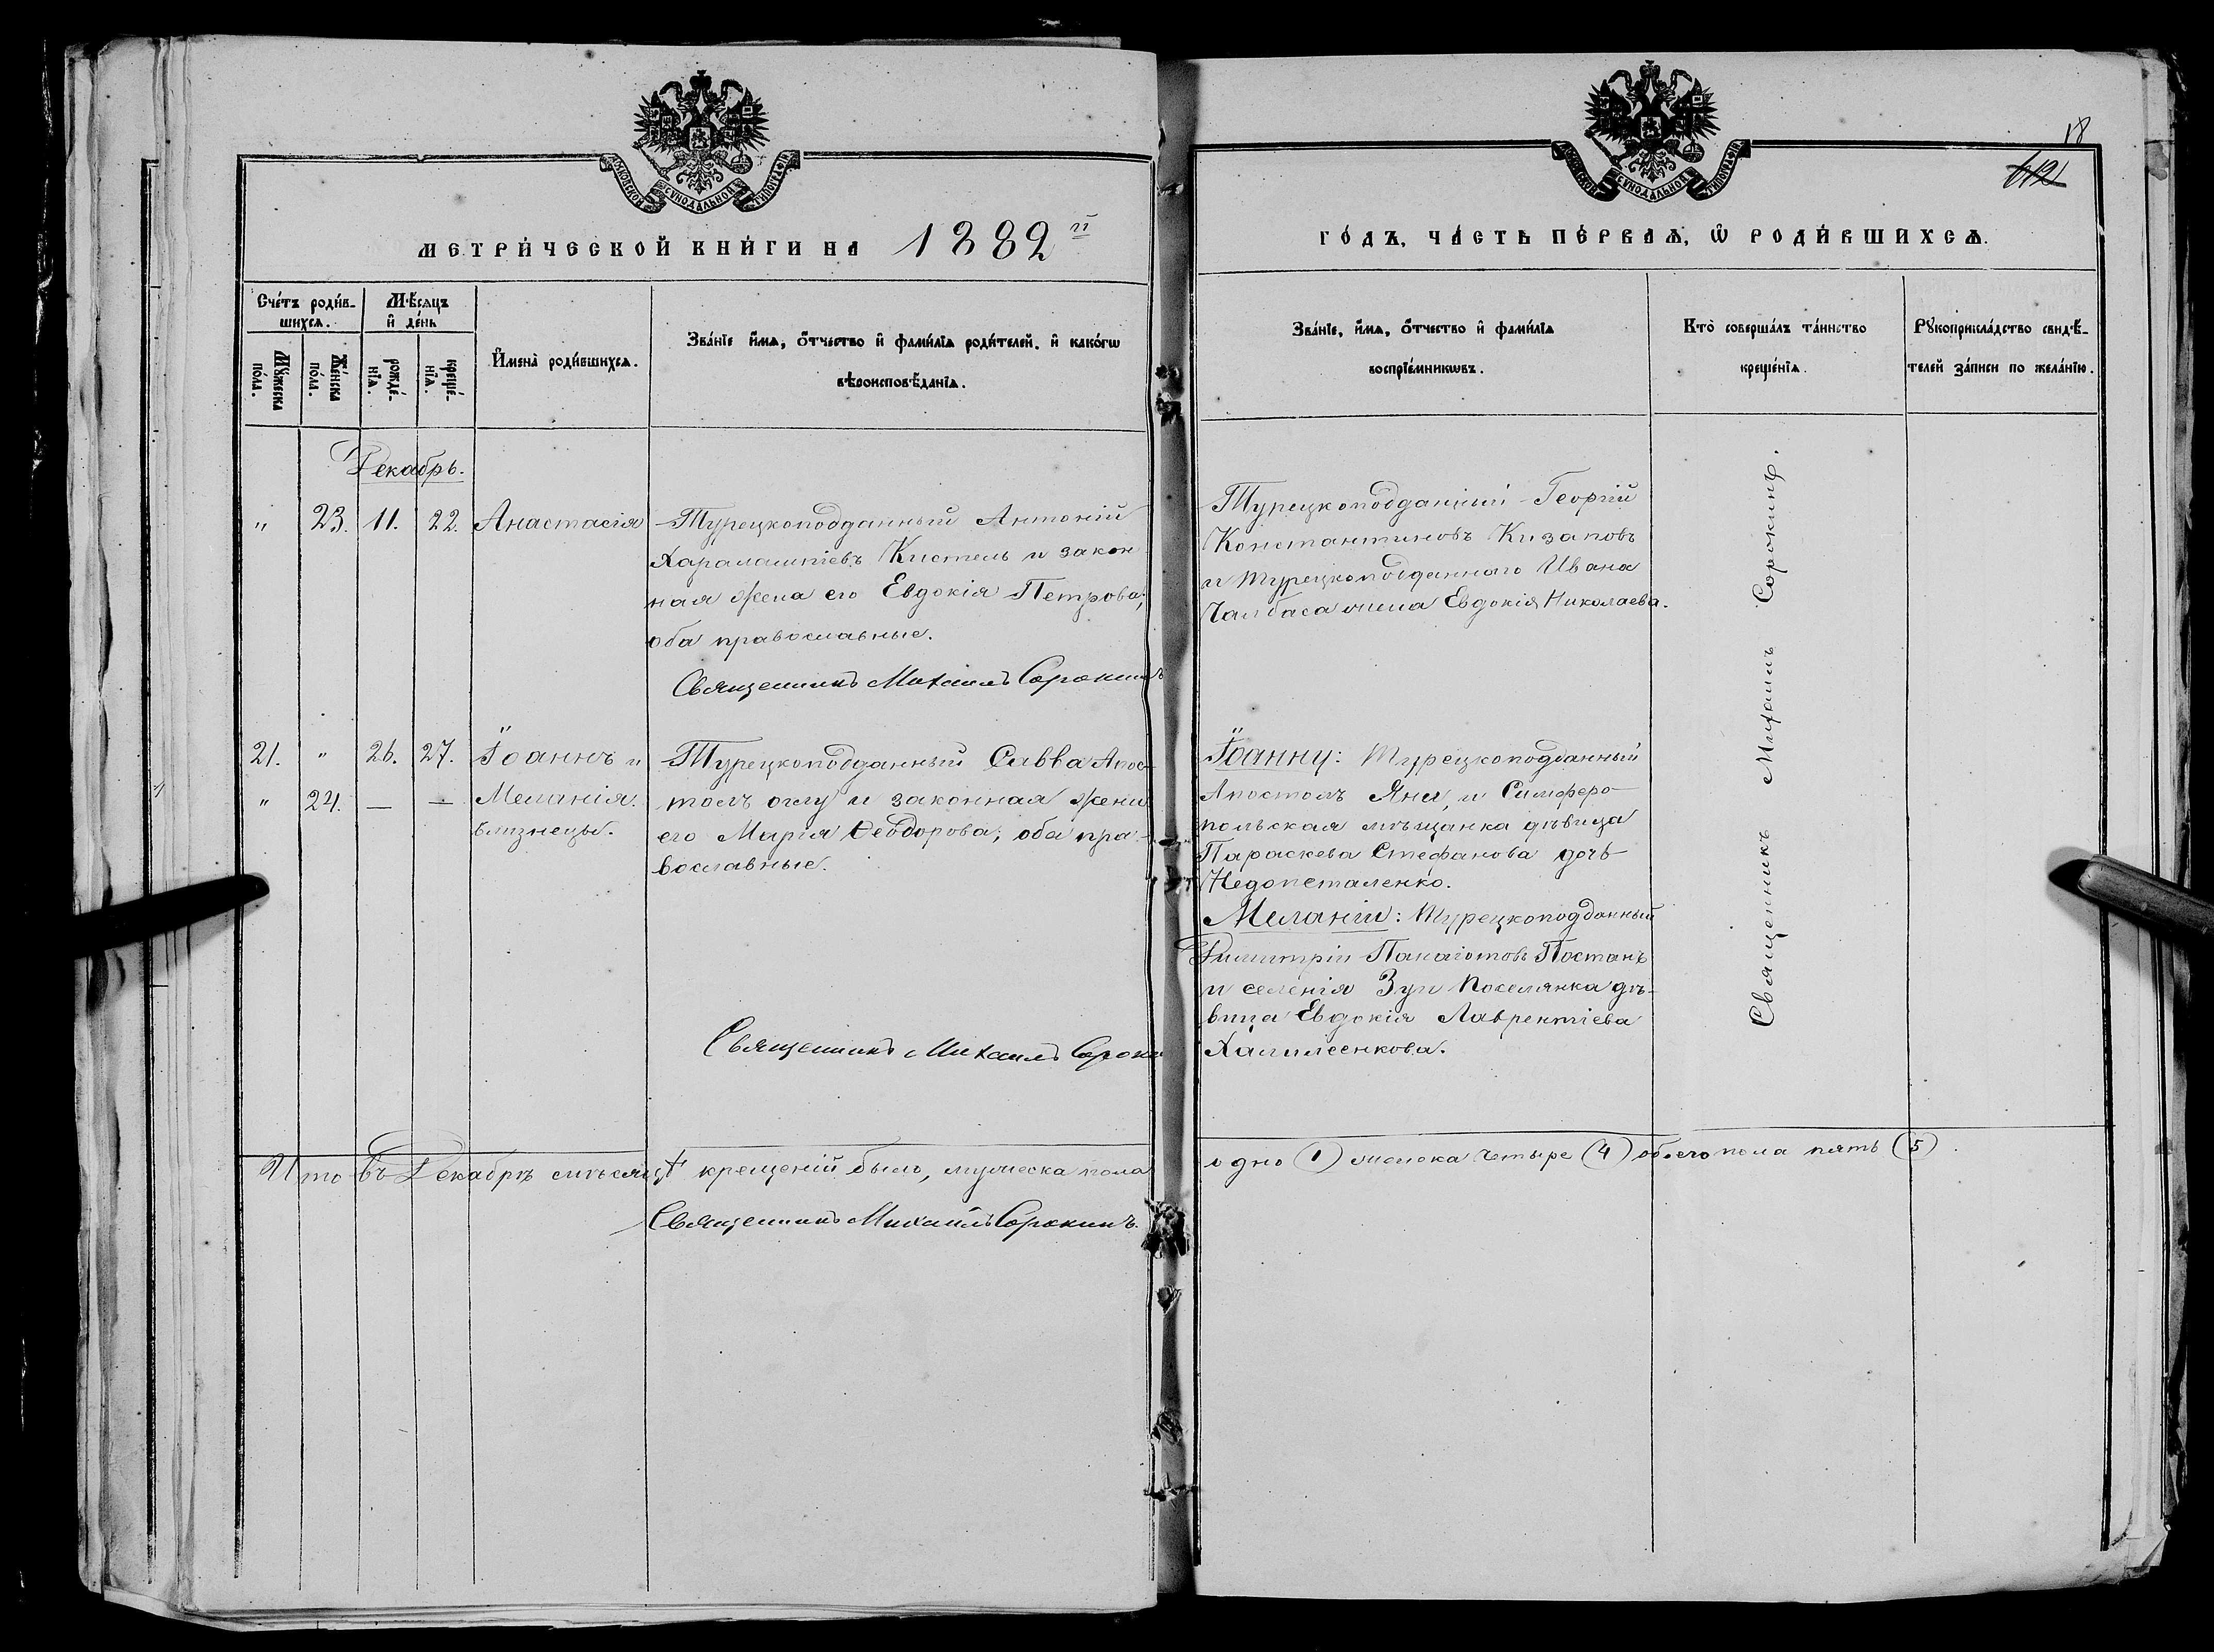 МОСКОВСКОЙ СѴНОДАЛЬНОЙ ТИПОГРАФІИ
МЕТРИ́ЧЕСКОЙ КНИ́ГИ НА 1882 й
Сче́тъ роди́в-
шихсѧ.
Мꙋ́жеска
по́ла.
Же́нска
по́ла.
Мѣ́сѧцъ
и҆ де́нь
рожде́-
нїѧ.
креще́-
нїѧ.
И҆мена̀ роди́вшихсѧ.
Зва́нїе и҆́мѧ, о҆́тчество и҆ фами́лїѧ роди́телей, и҆ како́гѡ
вѣроисповѣ́данїѧ.
Декабрь.
" 23. 11. 22. Анастасія
Турецкоподданный Антоній
Харалампіевъ Кистель и закон
ная жена его Евдокія Петрова;
оба православные.
Священникъ Михаилъ Сорокинъ
21. " 26. 27. Іоаннъ и
" 24. — — Меланія.
близнецы.
Турецкоподданный Савва Апос-
толъ оглу и законная жена
его Марія Ѳеодорова; оба пра-
вославные.
Священникъ Михаилъ Сороки
Итого въ Декабрѣ мѣсяцѣ крещеній было, мужеска пола
Священникъ Михаилъ Сорокинъ.
18
612
МОСКОВСКОЙ СѴНОДАЛЬНОЙ ТИПОГРАФІИ
ГО́ДЪ, ЧА́СТЬ ПЕ́РВАѦ, Ѽ РОДИ́ВШИХСѦ.
Зва́нїе, и҆́мѧ, о҆́тчество и҆ фами́лїѧ
воспрїе́мникѡвъ.
Кто̀ соверша́лъ та́инство
креще́нїѧ.
Рꙋкоприкла́дство свидѣ́-
телей за́писи по жела́нїю.
Турецкоподданный Георгій
Константиновъ Кизаповъ
и турецкоподданного Ивана
Чалбаса жена Евдокія Николаева.
Іоанну: Турецкоподданный
Апостолъ Яни, и Симферо-
польская мѣщанка дѣвица
Параскева Стефанова дочь
Недопеталенко.
Меланіи: Турецкоподданный
Димитрій Панаіотовъ Постанъ
и селенія Зуи поселянка дѣ-
вица Евдокія Лаврентіева
Халилеенкова.
Священникъ Михаилъ Сорокинъ.
одно (1) женска четыре (4) обоего пола пять (5).